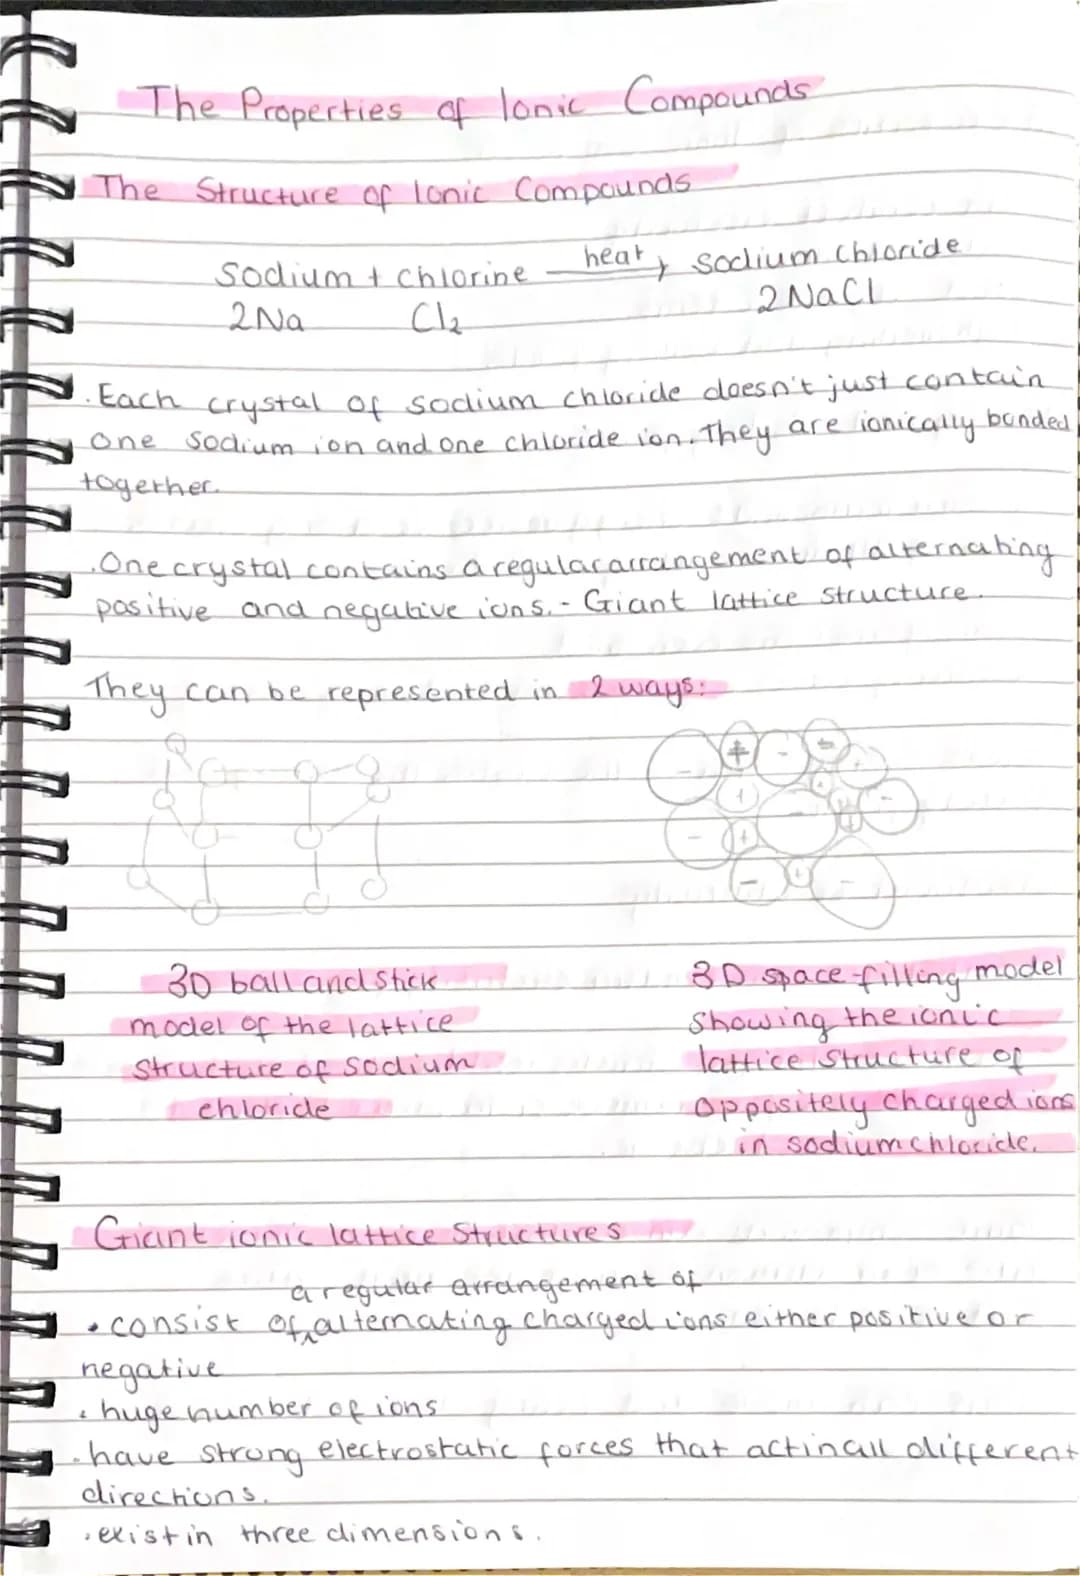 The Properties of Ionic Compounds
The Structure of Ionic Compounds
Sodium + chlorine heat → sodium chloride
2Na Cl₂ 2NaCl
. Each crystal of sodium chloride doesn't just contain
one sodium ion and one chloride ion. They are ionically bonded
together.
. One crystal contains a regular arrangement of alternating
positive and negative ions. - Giant lattice structure.
They can be represented in 2 ways:
- + - +
+ +
- + - + + -
- + -
3D ball and stick
model of the lattice
structure of sodium
chloride
3D space-filling model
showing the ionic
lattice structure of
oppositely charged ions
in sodium chloride.
Giant ionic lattice Structures
a regular arrangement of
• consist of ^ alternating charged ions either positive or
negative
• huge number of ions
• have strong electrostatic forces that act in all different
directions.
• exist in three dimensions.